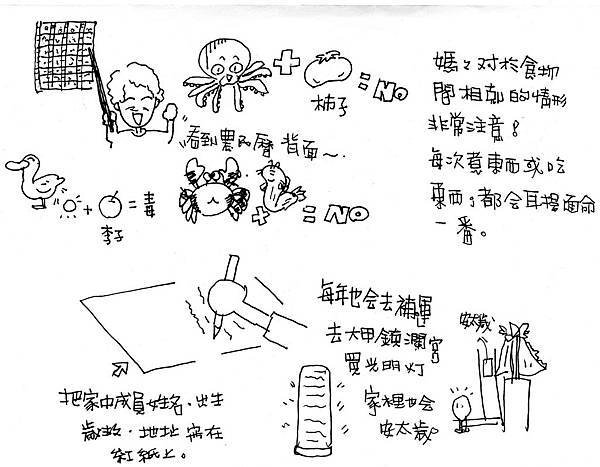 +
= NO
柿子
看到農民曆背面~
+ = 毒
李子
+ = NO
媽々对於食物
間相剋的情形
非常注意!
每次煮東西或吃
東西,都会耳提面命
一番。
每年也会去補運
去大甲鎮瀾宮
買光明灯
家裡也会
安太歲。
安太歲
把家中成員姓名、出生
歲數、地址寫在
紅紙上。